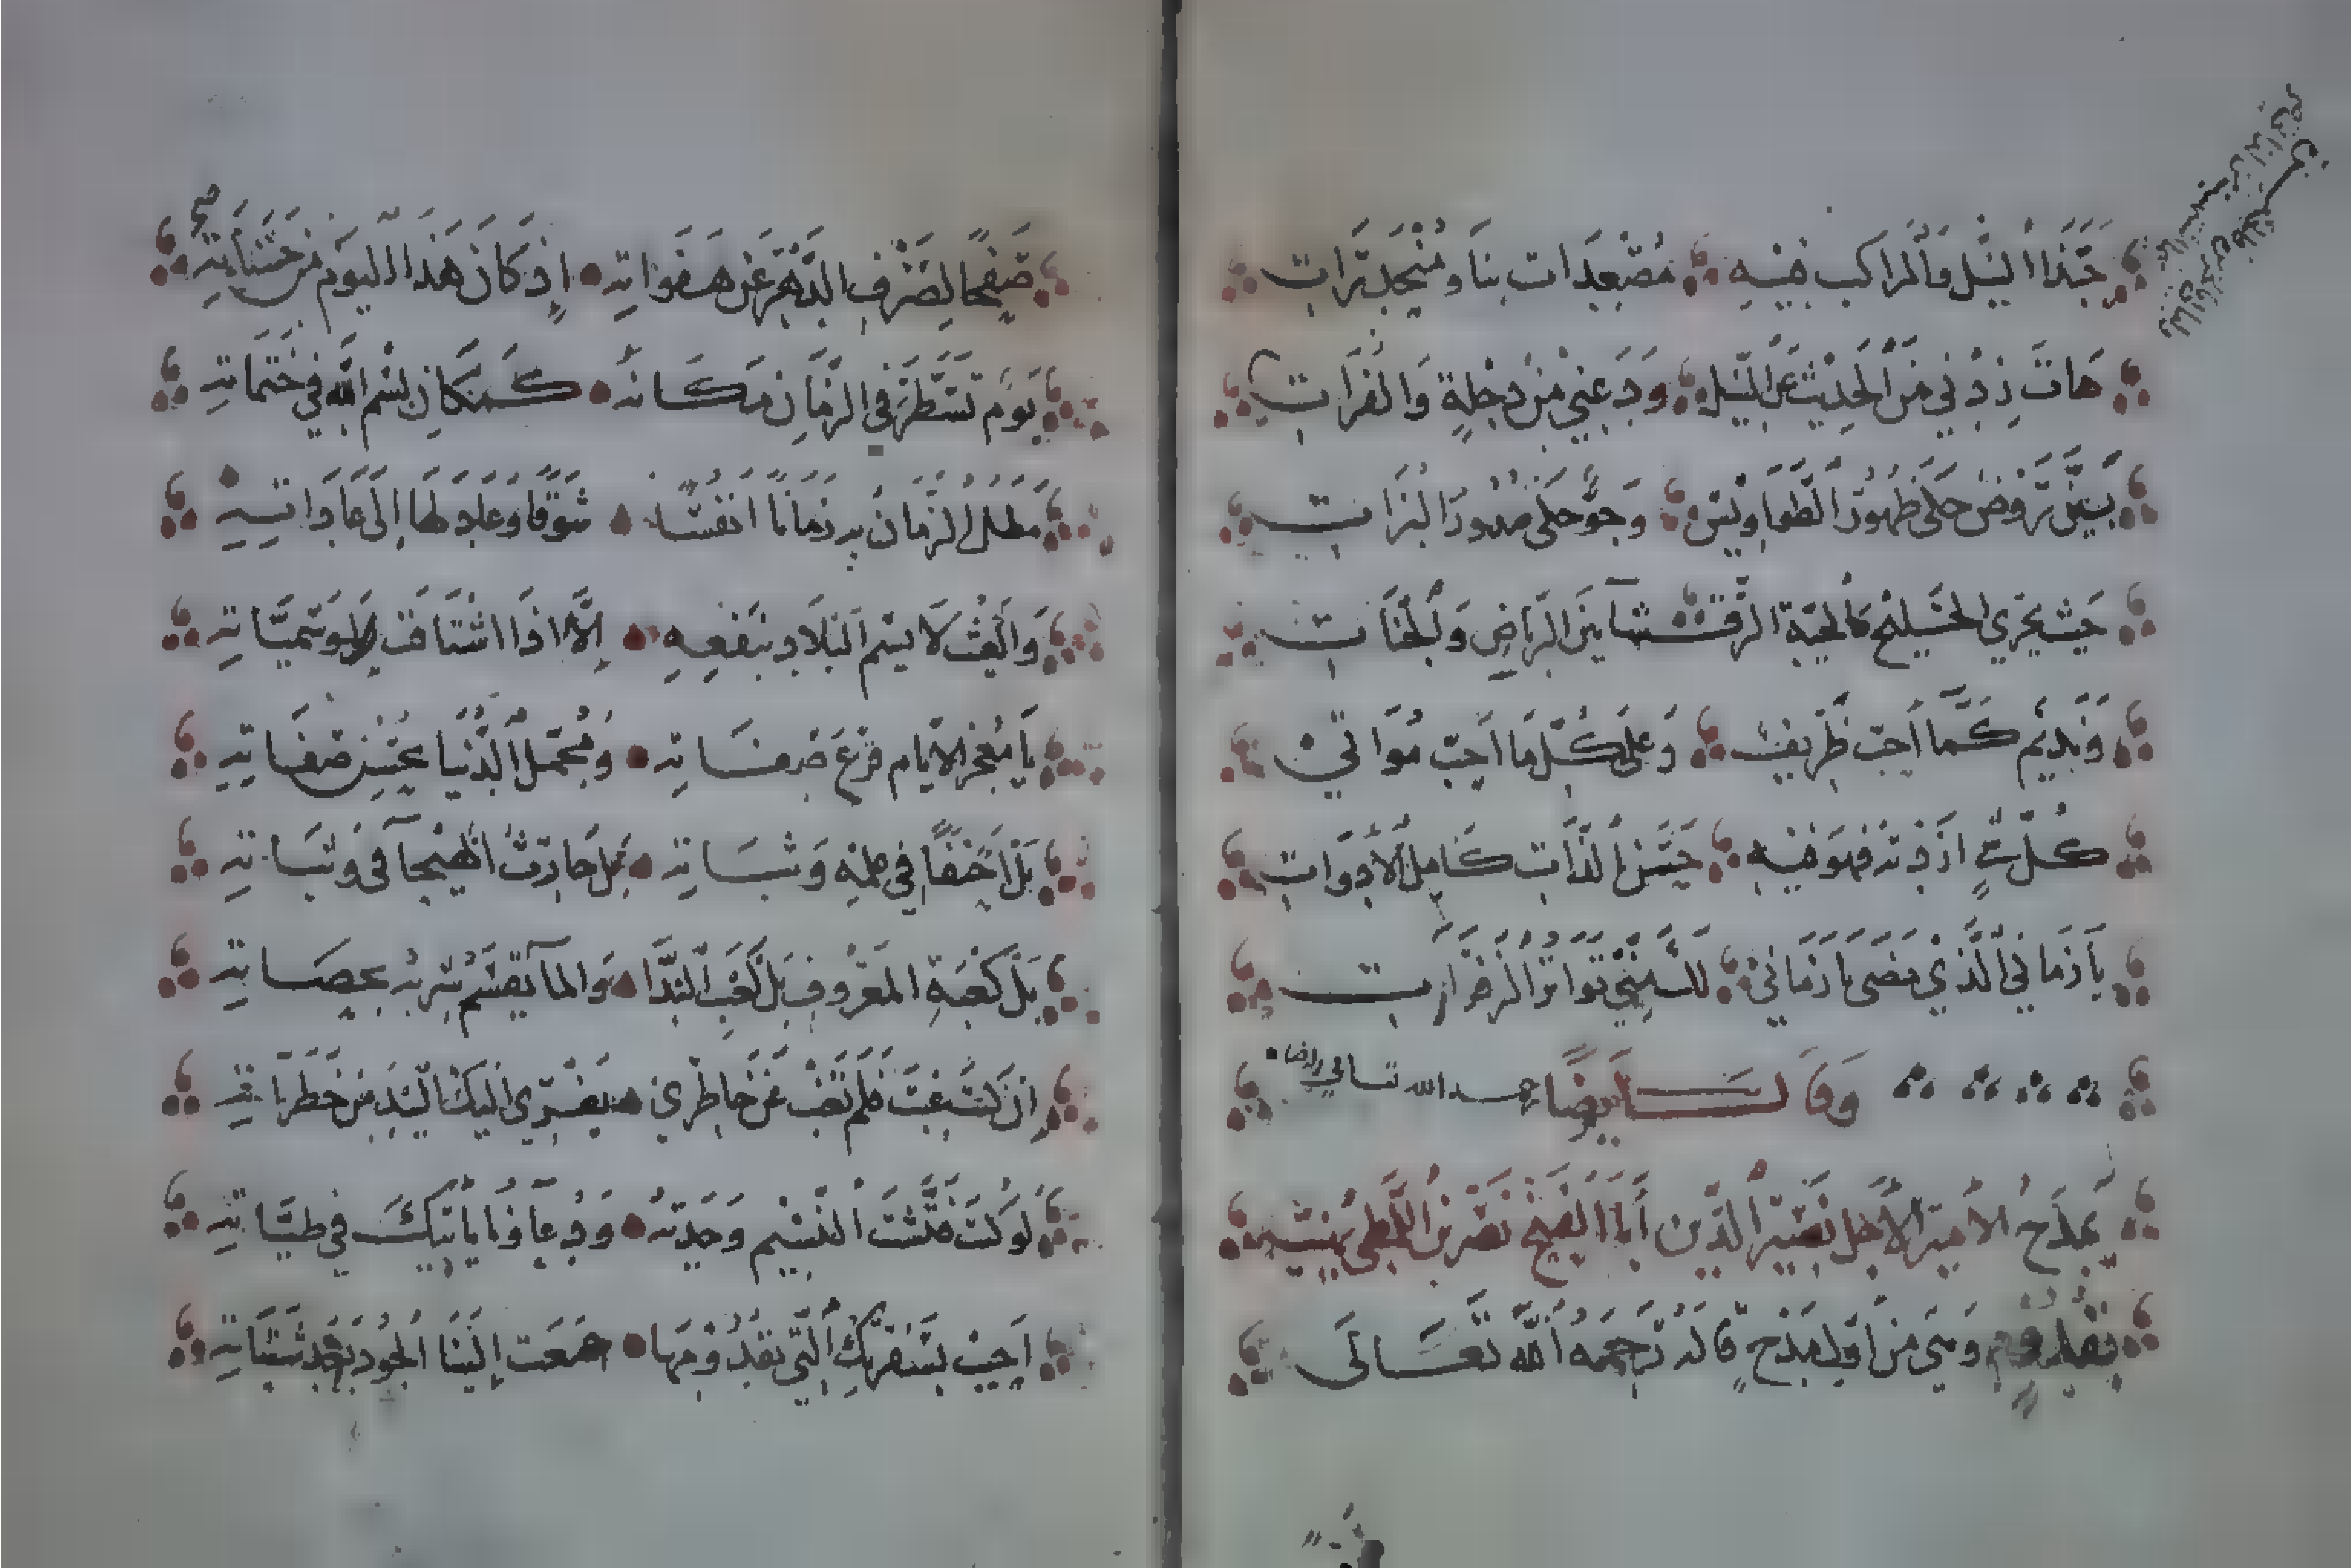 حَبَّذَا النِّيلُ وَالْمَرَاكِبُ فِيهِ مُصْعِدَاتٍ بِنَا وَمُنْحَدِرَاتِ
هَاتِ زِدْنِي مِنَ الْحَدِيثِ عَنِ النِّيلِ وَدَعْنِي مِنْ دِجْلَةٍ وَالْفُرَاتِ
بَيْنَ رَوْضٍ حَكَى ظُهُورَ الطَّوَاوِيسِ وَجَوٍّ حَكَى صُدُورَ الْبُزَاتِ
حَيْثُ يَجْرِي الْخَلِيجُ كَالْحَيَّةِ الرَّقْشَآ بَيْنَ الرِّيَاضِ وَالْجَنَّاتِ
وَنَدِيمٍ كَمَا أُحِبُّ ظَرِيفٍ وَعَلَى كُلِّ مَا أُحِبُّ مُوَاتِي
كُلُّ شَيٍّ أَرَدْتَهُ فَهُوَ فِيهِ حَسَنُ الذَّاتِ كَامِلُ الْأَدَوَاتِ
يَا زَمَانِي الَّذِي مَضَى يَا زَمَانِي لَكَ مِنِّي تَوَاتُرُ الزَّفَرَاتِ
وَقَالَ أَيْضًا رحمه الله تعالى
يَمْدَحُ الْأَمِيرَ الْأَجَلَّ نَصِيرَ الدِّينِ أَبَا الْفَتْحِ نَصْرَ بْنَ اللَّمْطِي يُهَنِّيهِ
بِقُدُومٍ وَهِيَ مِنْ أَوَّلِ مَدْحٍ قَالَهُ رَحِمَهُ اللَّهُ تَعَالَى
صَفْحًا لِصَرْفِ الدَّهْرِ عَنْ هَفَوَاتِهِ إِذْ كَانَ هَذَا الْيَوْمُ مِنْ حَسَنَاتِهِ صح
يَوْمٌ تَسَطَّرَ فِي الزَّمَانِ مَكَانُهُ كَمَكَانِ بِسْمِ اللَّهِ فِي خَتَمَاتِهِ
مَطَلَ الزَّمَانُ بِهِ زَمَانًا أَنْفُسًا شَوْقًا وَعَادَ لَهَا إِلَى عَادَاتِهِ
وَالْغَيْثُ لَا يَسِمُ الْبِلَادَ بِنَفْعِهِ إِلَّا إِذَا اشْتَاقَتْ لِوَسْمِيَّاتِهِ
يَا مُعْجِزَ الْأَيَّامِ قَرْعَ صَفَاتِهِ وَمُجَمِّلَ الدُّنْيَا بِحُسْنِ صِفَاتِهِ
بَلْ أَحْنَفًا فِي حِلْمِهِ وَثَبَاتِهِ بَلْ حَارِثَ الْهَيْجَآ فِي وَثَبَاتِهِ
بَلْ كَعْبَةَ الْمَعْرُوفِ بَلْ كَعْبَ النَّدَا وَالْمَآ يُقْسَمُ شُرْبُهُ بِحَصَاتِهِ
إِنْ كُنْتَ غِبْتَ فَلَمْ تَغِبْ عَنْ خَاطِرِي
لَوْ كُنْتَ فَتَّشْتَ النَّسِيمَ وَجَدْتَهُ وَدُعَآؤُنَا يَأْتِيكَ فِي طَيَّاتِهِ
أَحْبِبْ بِسَفْرَتِكَ الَّتِي بِقُدُومِهَا جَمَعَتْ إِلَيْنَا الْجُودَ بَعْدَ شَتَاتِهِ